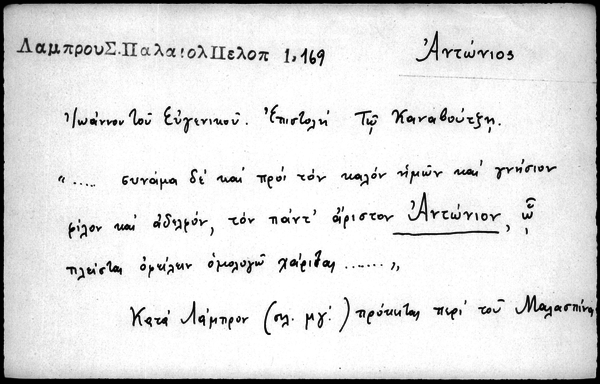 ΛαμπρουΣ.ΠαλαιολΠελοπ 1,169
Ἀντώνιος
Ἰωάννου τοῦ Εὐγενικοῦ. Ἐπιστολή Τῷ Καναβούτζῃ.
"..... συνάμα δέ καί πρός τόν καλόν ἡμῶν καί γνήσιον
φίλον καί ἀδελφόν, τόν πάντ' ἄριστον Ἀντώνιον, ᾧ
πλείστας ὀφείλειν ὁμολογῶ χάριτας ......."
Κατά Λάμπρον (σλ. μγ'.) πρόκειται περί τοῦ Μαλασπίνα